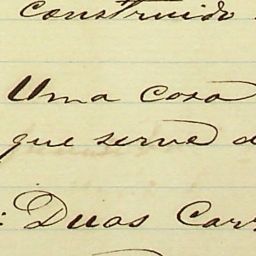 construido
Uma casa
que serve d
: Duas Carr